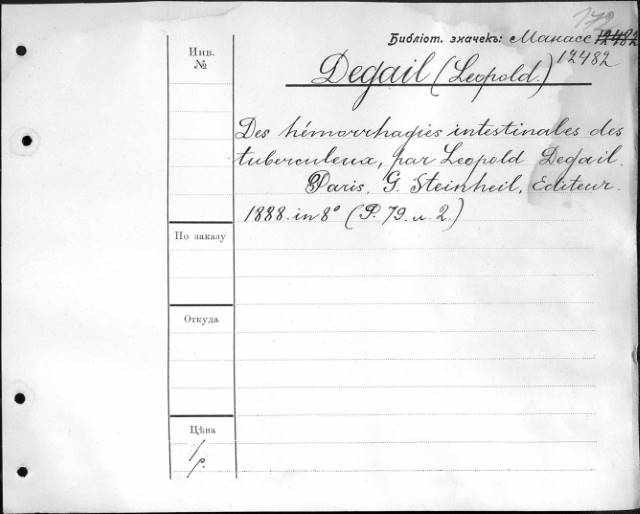 Библіот. значекъ: Манасс 12482
12482
Инв.
№
Degail (Leopold.)
Des hémorrhagies intestinales des
tuberculeux, par Leopold Degail.
Paris. G. Steinheil, Editeur.
1888. in 8° (P. 79. u. 2.)
По заказу
Откуда
Цѣна
1/р.